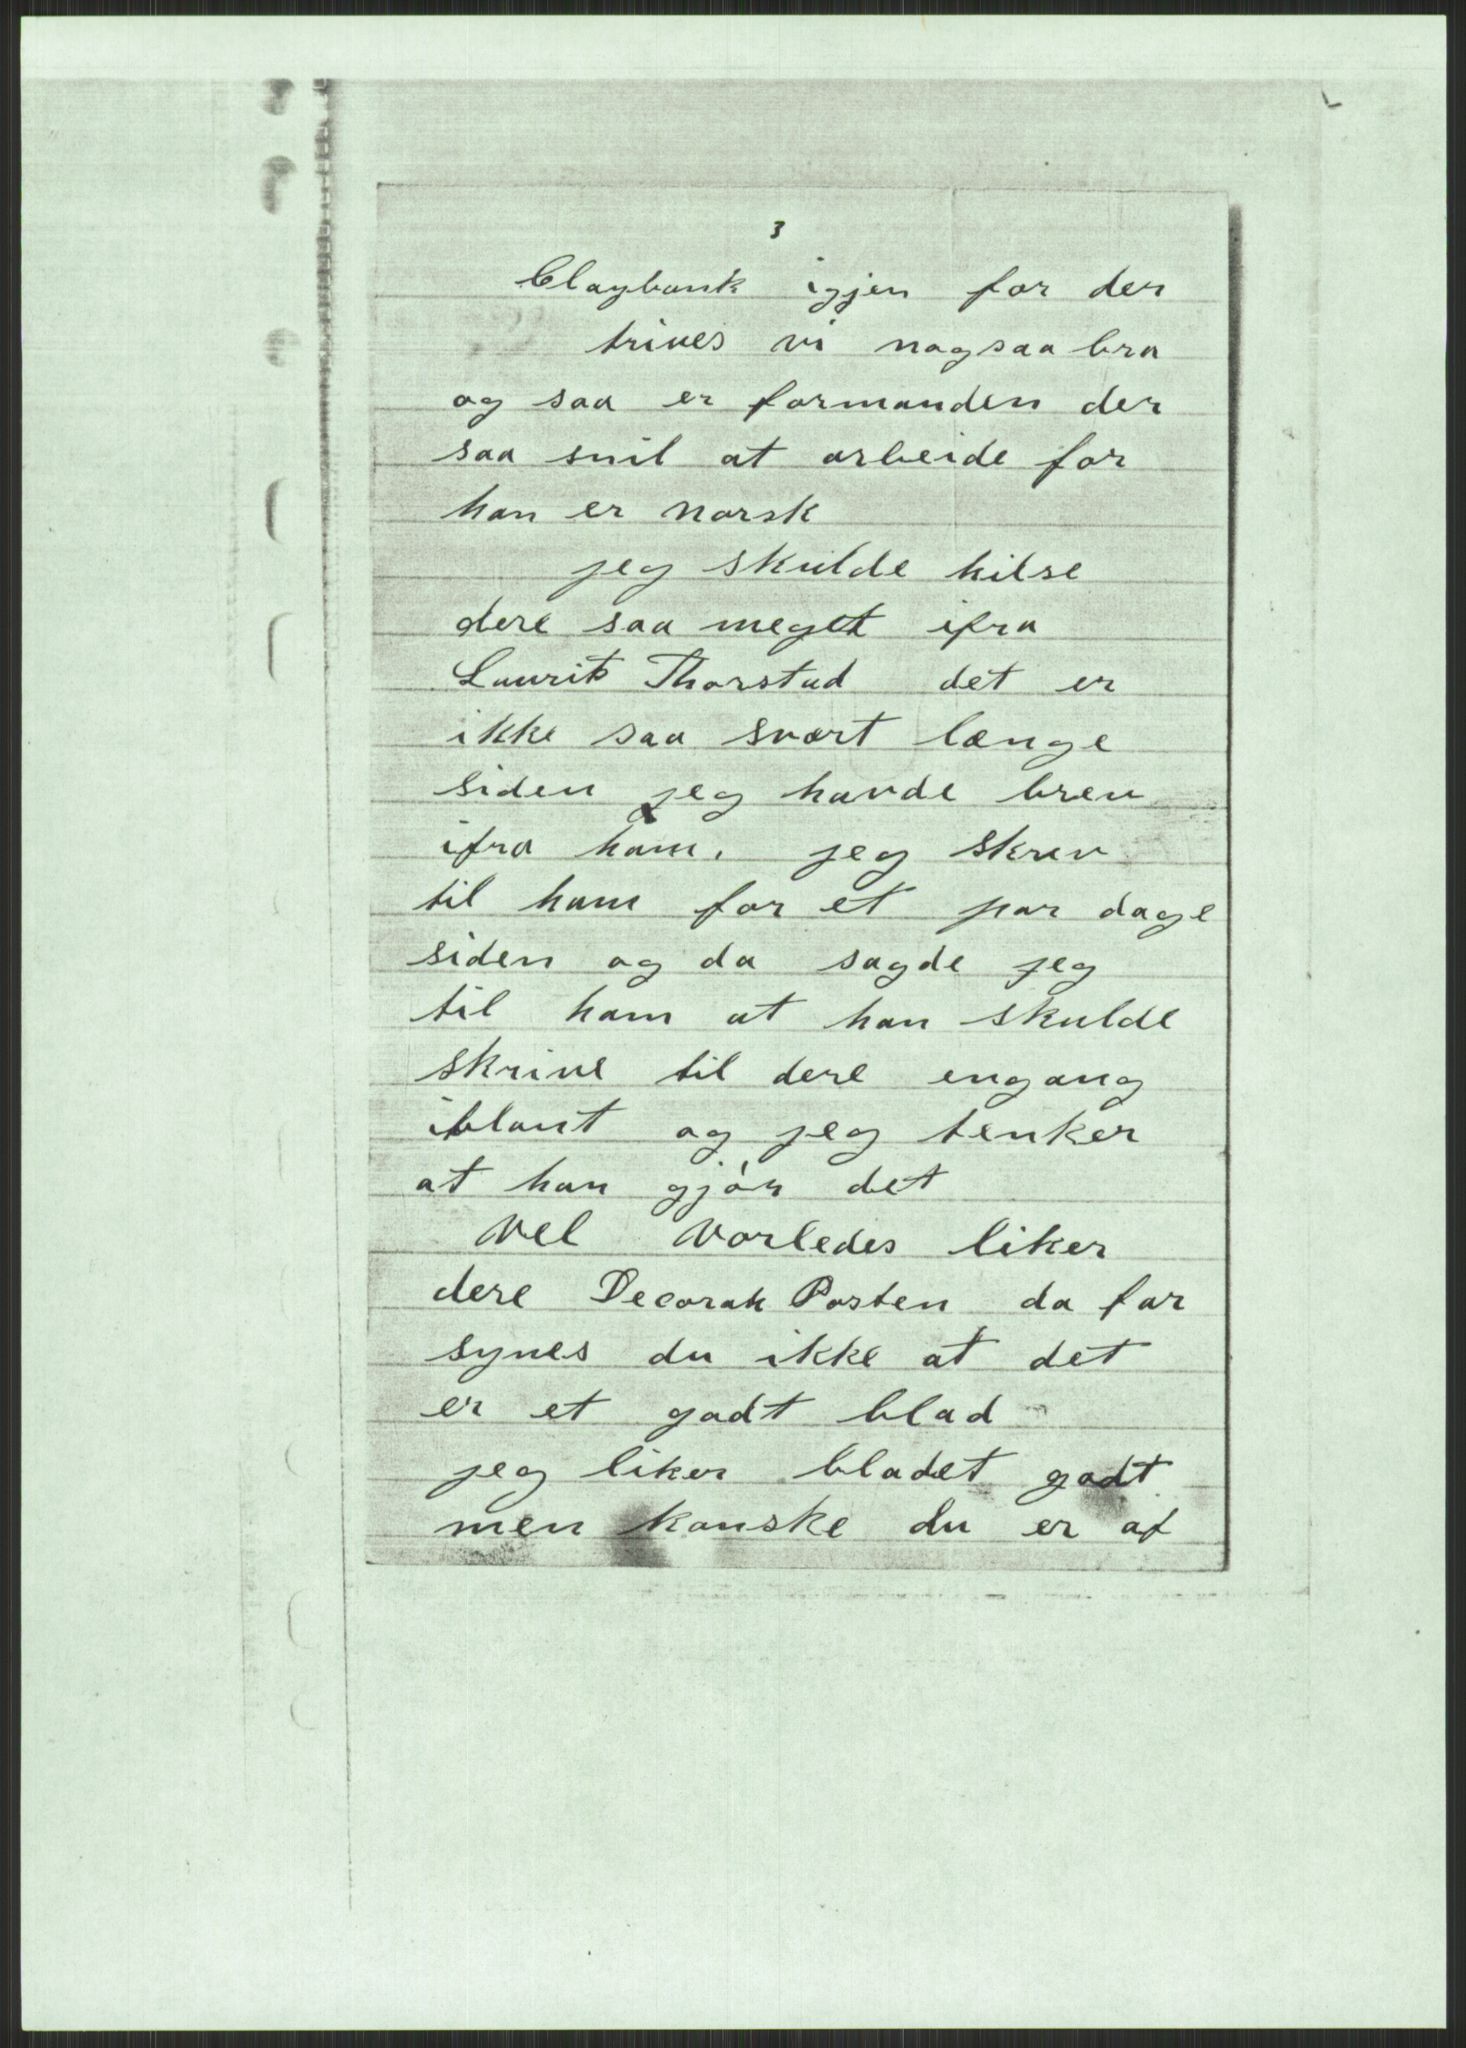 3
Claybank igjen for der
trives vi nogsaa bra
og saa er formanden der
saa snil at arbeide for
han er norsk
jeg skulde hilse
dere saa meget ifra
Laurits Thorstad det er
ikke saa svært længe
siden jeg havde brev
ifra ham. jeg skrev
til ham for et par dage
siden og da sagde jeg
til ham at han skulde
skrive til dere engang
iblant og jeg tenker
at han gjør det
Vel Vorledes liker
dere Decorah Posten da far
synes du ikke at det
er et godt blad
jeg liker bladet godt
men kanske du er af